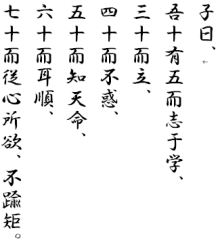 子曰、
吾十有五而志于学、
三十而立、
四十而不惑、
五十而知天命、
六十而耳順、
七十而従心所欲、不踰矩。